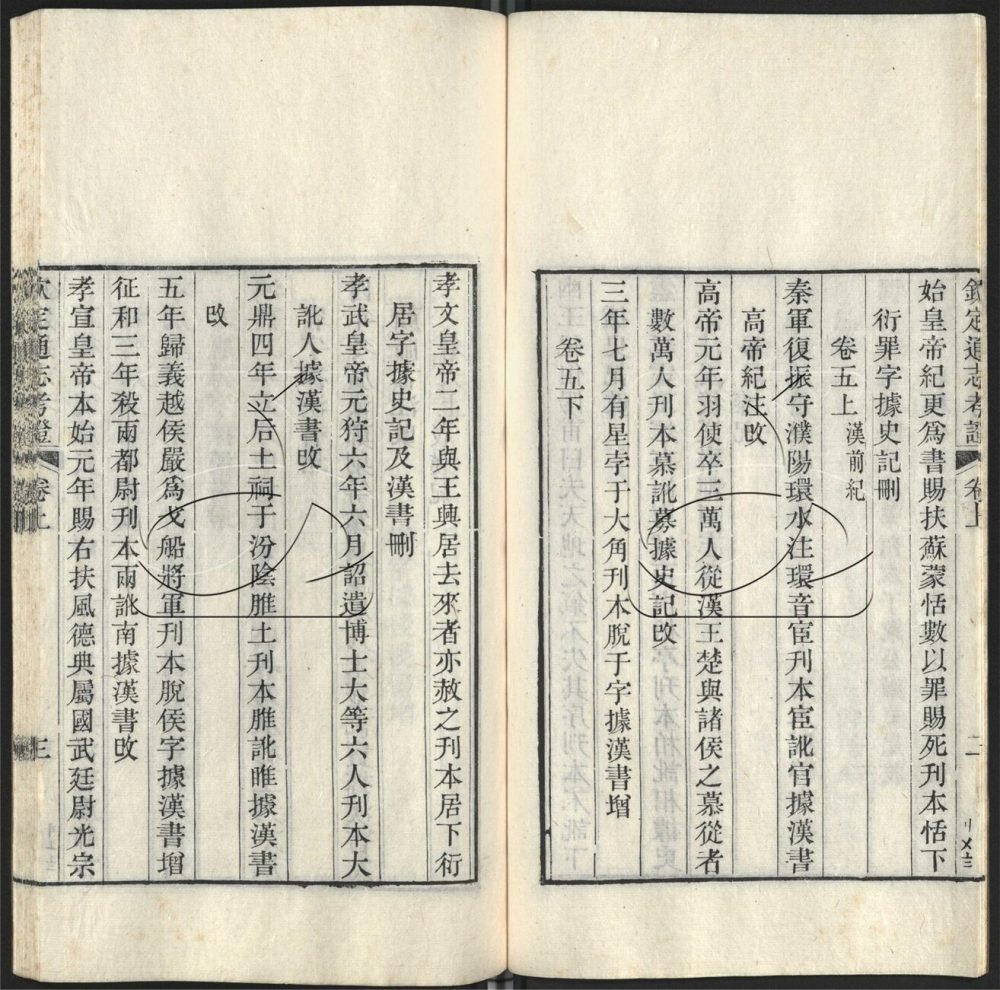 欽定通志考證 卷上 二
始皇帝紀更爲書賜扶蘇蒙恬數以罪賜死刊本恬下
衍罪字據史記刪
卷五上 漢前紀
秦軍復振守濮陽環水注環音宦刊本宦訛官據漢書
高帝紀注改
高帝元年羽使卒三萬人從漢王楚與諸侯之慕從者
數萬人刊本慕訛募據史記改
三年七月有星孛于大角刊本脫于字據漢書增
卷五下
孝文皇帝二年與王興居去來者亦赦之刊本居下衍
居字據史記及漢書刪
孝武皇帝元狩六年六月詔遣博士大等六人刊本大
訛人據漢書改
元鼎四年立后土祠于汾陰脽土刊本脽訛睢據漢書
改
五年歸義越侯嚴爲戈船將軍刊本脫侯字據漢書增
征和三年殺兩都尉刊本兩訛南據漢書改
孝宣皇帝本始元年賜右扶風德典屬國武廷尉光宗
欽定通志考證 卷上 三